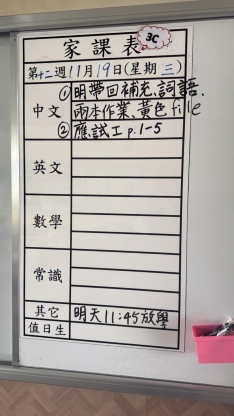 家課表 3C
第十二週 11月19日(星期三)
①明帶回補充、詞語、
中文 兩本作業、黃色file
②應試工 p.1-5
英文
數學
常識
其它 明天11:45放學
值日生